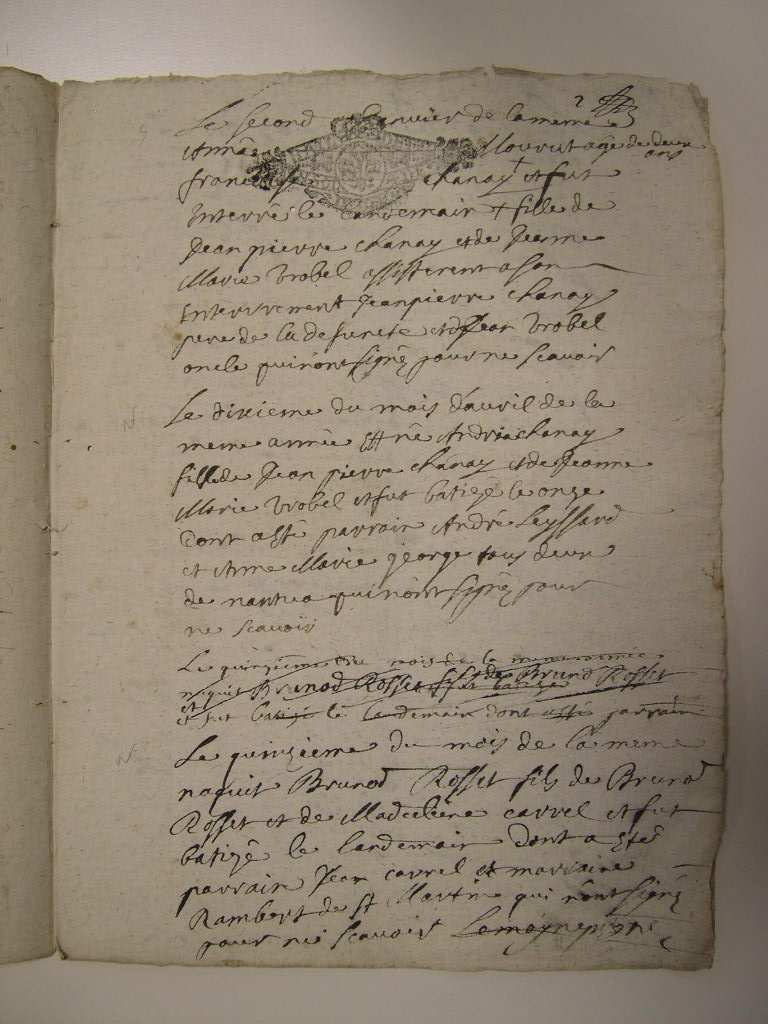 2
Le second Janvier de la meme
Année Mourut agé de deux
ans
françoise chanay et fut
Interré le landemain + fille de
Jean pierre chanay et de Jeanne
Marie Vrobel assisterent a son
Interrement Jeanpierre chanay
pere de la defuncte et Jean Vrobel
oncle qui n'ont signéz pour ne scavoir
Le dixieme du mois d'auril de la
meme année Est né Andriachanay
fille de Jean pierre chanay et de Jeanne
Marie Vrobel et fut batizé le onze
Dont a esté parrain André Leyssard
et Anne Marie george tous deux
de nantua qui n'ont signéz pour
ne scavoir
Le quinzieme du mois de la meme année
naquit Brunod Rosset fils de Brunod Rosset
et fut batizé le landemain dont a esté parrain
Le quinzieme du mois de la meme
naquit Brunod Rosset fils de Brunod
Rosset et de Madeleine carrel et fut
batizé le landemain dont a esté
parrain Jean carrel et marraine
Rambert de St Martin qui n'ont signéz
pour ne scavoir